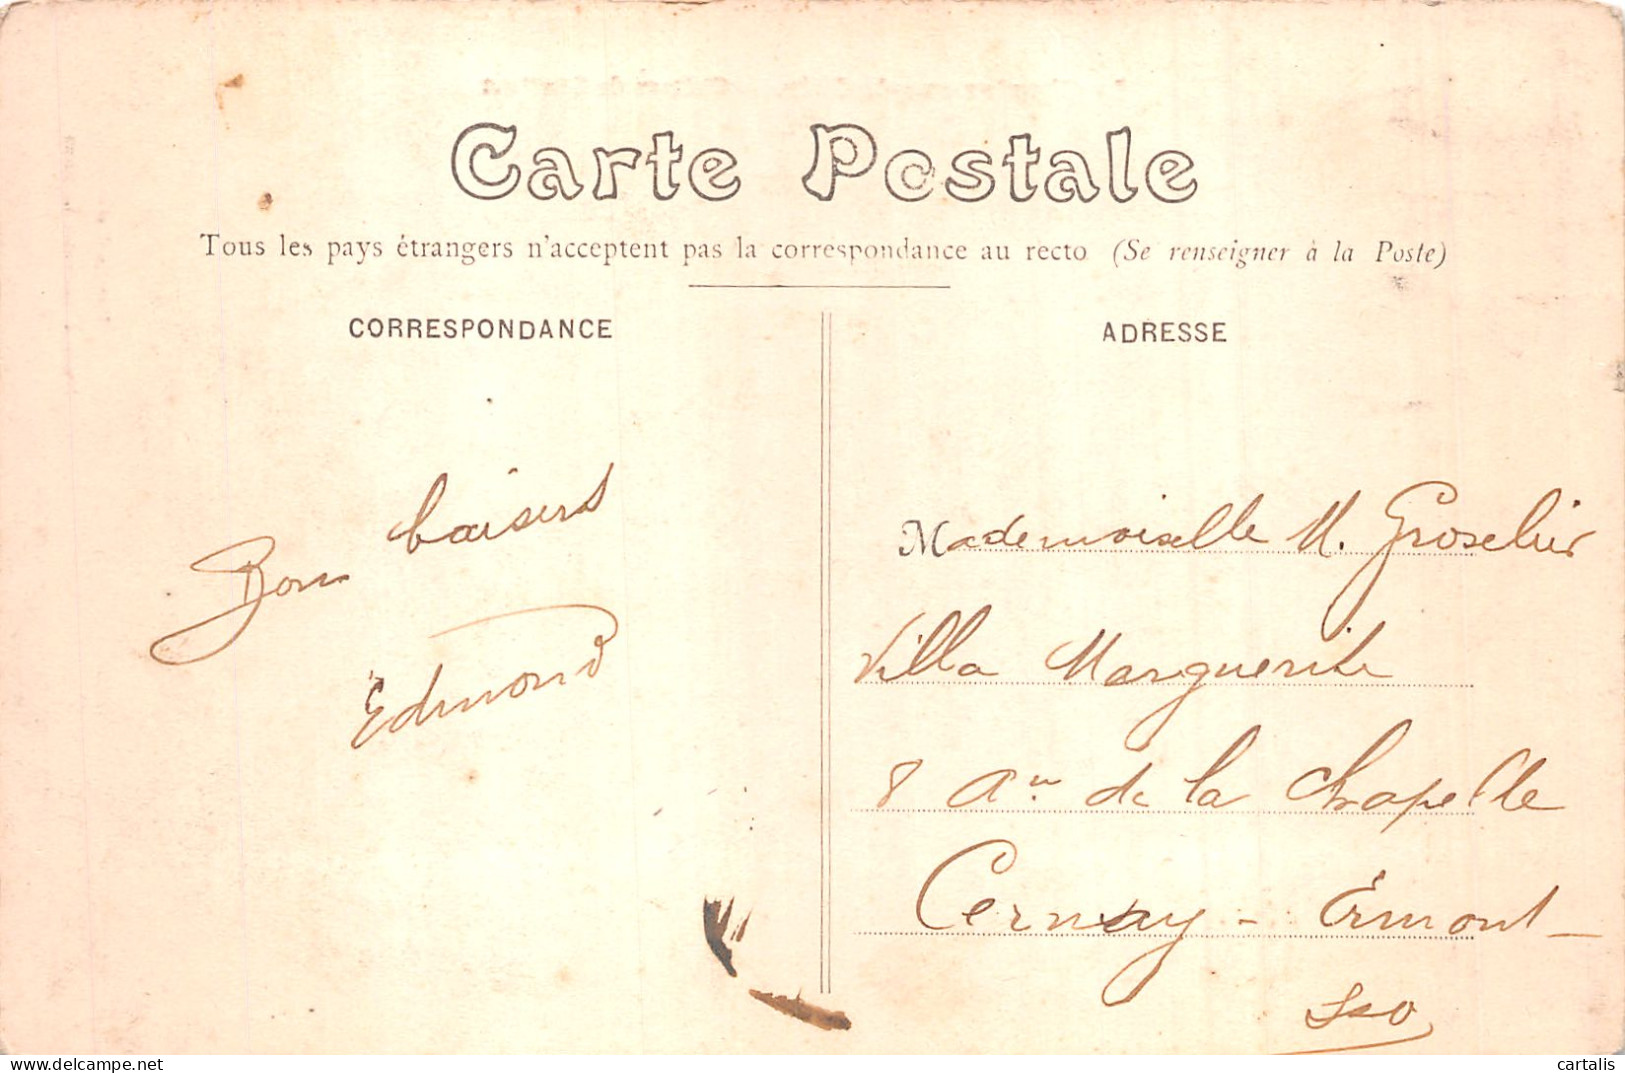 Carte Postale
Tous les pays étrangers n'acceptent pas la correspondance au recto (Se renseigner à la Poste)
CORRESPONDANCE
ADRESSE
Bons baisers
Edmond
Mademoiselle M. Groselier
Villa Marguerite
8 Aᵘ de la Chapelle
Cernay - Ermont -
S&O
cartalis